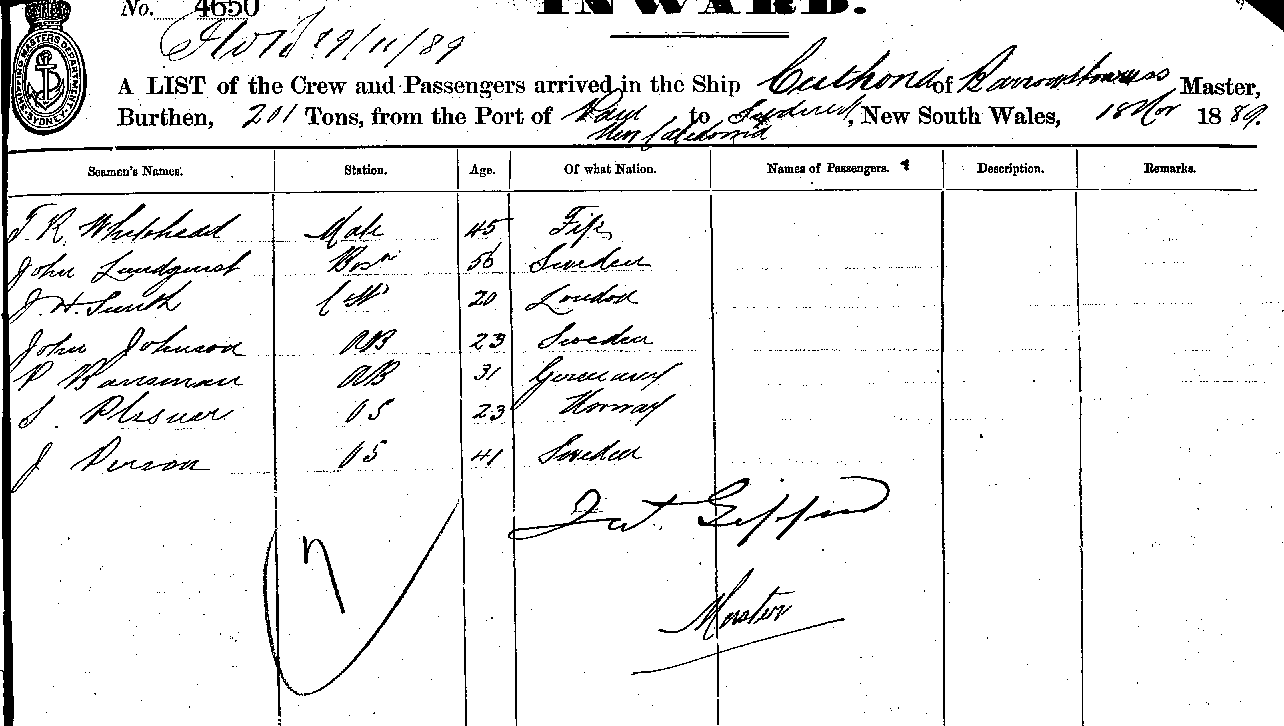 No. 4650 INWARD.
/11/89
A LIST of the Crew and Passengers arrived in the Ship of Master,
Burthen, 201 Tons, from the Port of to New South Wales, 18 Nov 1889.
New Caledonia
Seamen's Names. Station. Age. Of what Nation. Names of Passengers. Description. Remarks.
T. R. Whitehead Mate 45 Fife
John Lundquist Bosn 56 Sweden
J. H. Smith 20 London
John Johnson AB 23 Sweden
P AB 31 Germany
S. OS 23 Norway
J Person OS 41 Sweden
7
Master